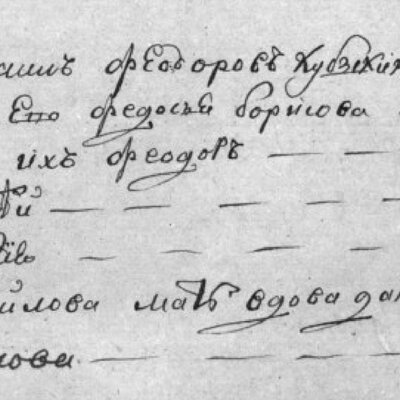 аилъ федоровъ Кубзких
Его федосьи борисова
ихъ феодоръ — —
й — — — —
— — — —
илова мать вдова да
нова — — — —